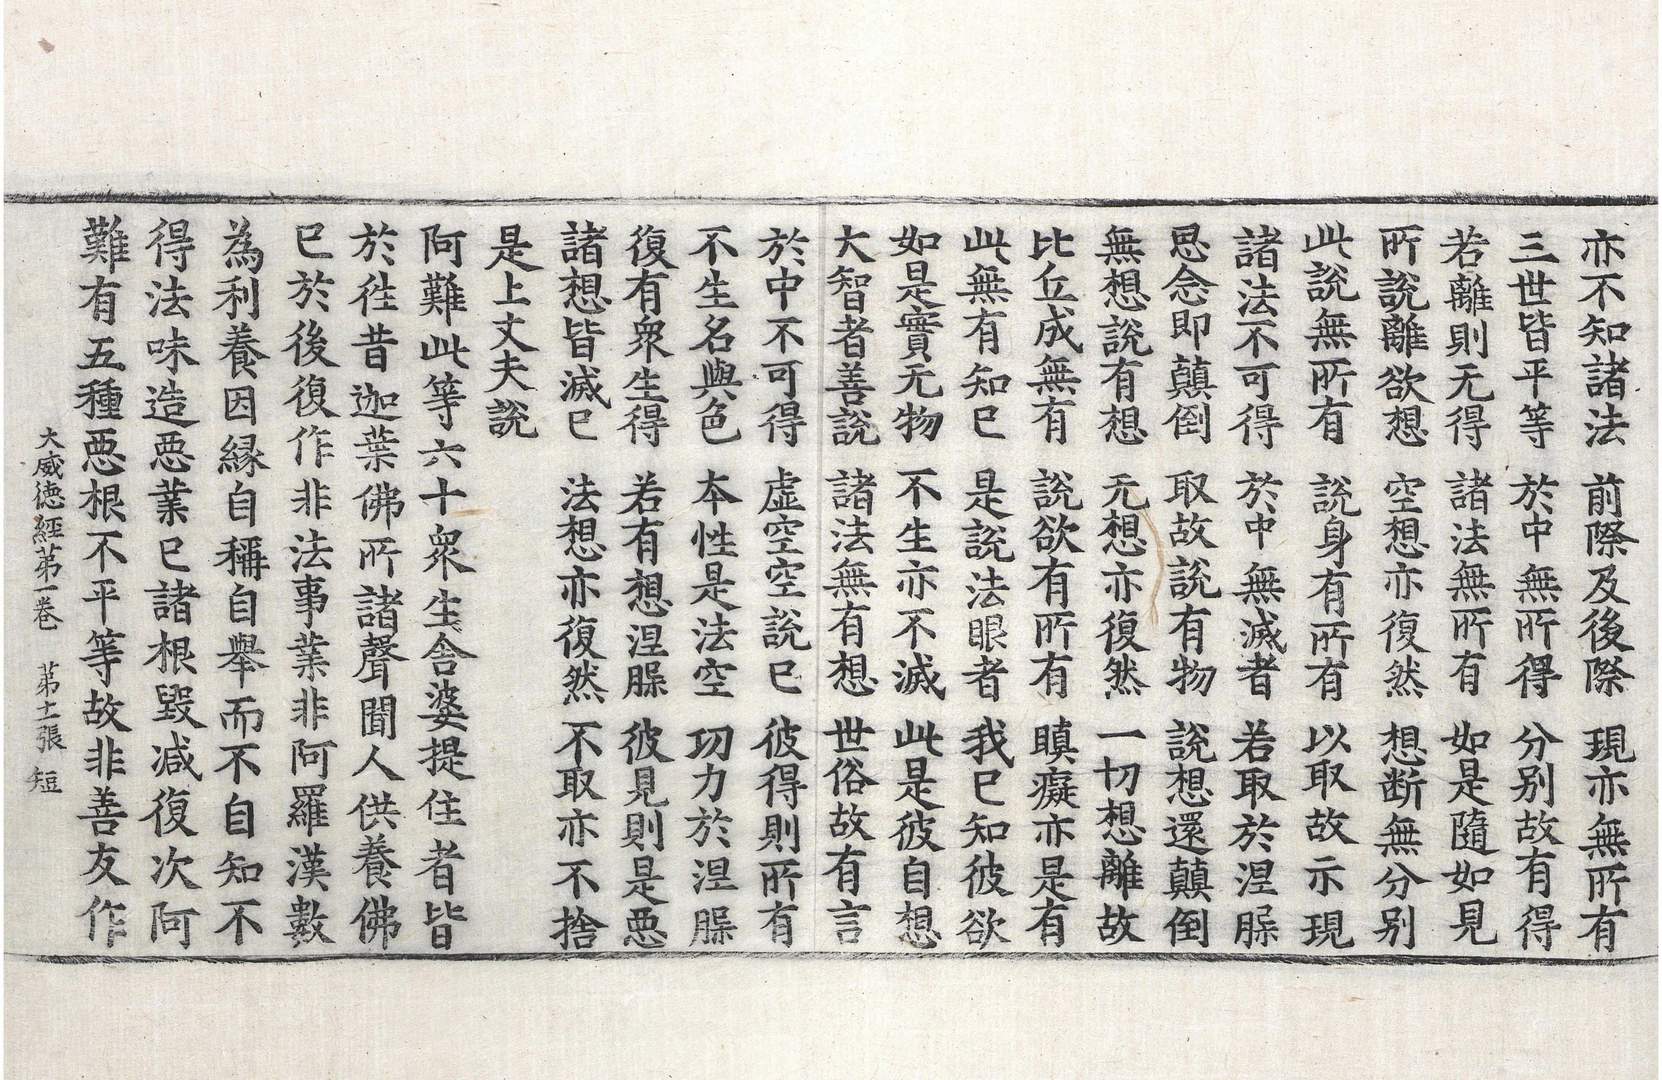 亦不知諸法 前際及後際 現亦無所有
三世皆平等 於中無所得 分别故有得
若離則无得 諸法無所有 如是隨如見
所說離欲想 空想亦復然 想断無分别
此說無所有 說身有所有 以取故示現
諸法不可得 於中無滅者 若取於涅槃
思念即顛倒 取故說有物 說想還顛倒
無想說有想 无想亦復然 一切想離故
比丘成無有 說欲有所有 瞋癡亦是有
此無有知已 是說法眼者 我已知彼欲
如是實无物 不生亦不滅 此是彼自想
大智者善說 諸法無有想 世俗故有言
於中不可得 虛空空說已 彼得則所有
不生名與色 本性是法空 功力於涅槃
復有衆生得 若有想涅槃 彼見則是悪
諸想皆滅已 法想亦復然 不取亦不捨
是上丈夫說
阿難此等六十衆生舍婆提住者皆
於往昔迦葉佛所諸聲聞人供養佛
已於後復作非法事業非阿羅漢數
為利養因縁自稱自舉而不自知不
得法味造悪業已諸根毀減復次阿
難有五種悪根不平等故非善友作
大威德經第一卷 第士張 短